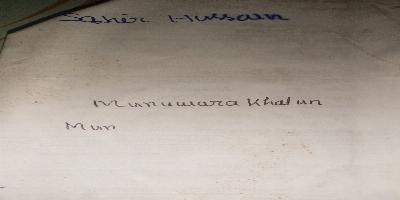 Saher Hussain
Munuwara Khatun
Mun